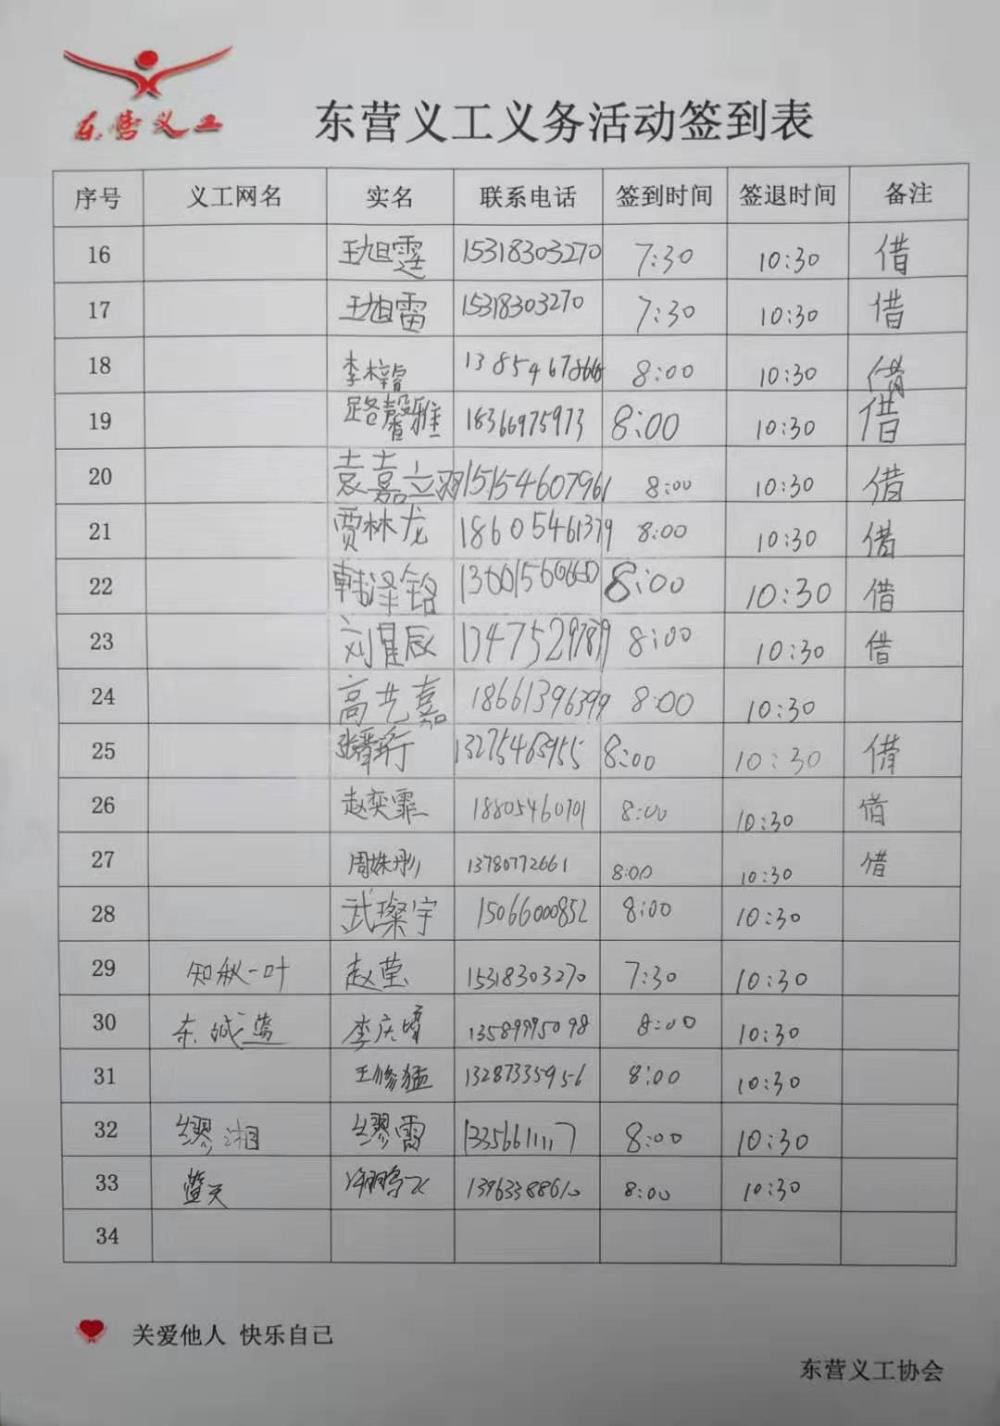 东营义工
东营义工义务活动签到表
序号 义工网名 实名 联系电话 签到时间 签退时间 备注
16 王旭霆 15318303270 7:30 10:30 借
17 王旭雷 15318303270 7:30 10:30 借
18 李梓睿 8:00 10:30 借
19 路馨雅 18366975973 8:00 10:30 借
20 袁嘉 15154607961 8:00 10:30 借
21 贾林龙 18605461379 8:00 10:30 借
22 韩泽铭 8:00 10:30 借
23 刘星辰 13475297879 8:00 10:30 借
24 高艺嘉 18661396399 8:00 10:30
25 13275463955 8:00 10:30 借
26 赵奕霏 18805460701 8:00 10:30 借
27 周姝彤 13780772661 8:00 10:30 借
28 武璨宇 15066000852 8:00 10:30
29 知秋一叶 赵莹 15318303270 7:30 10:30
30 李庆 13589995098 8:00 10:30
31 王修猛 13287335956 8:00 10:30
32 缪湘 缪雷 13356611117 8:00 10:30
33 蓝天 许鹏飞 13963388610 8:00 10:30
34
关爱他人 快乐自己
东营义工协会